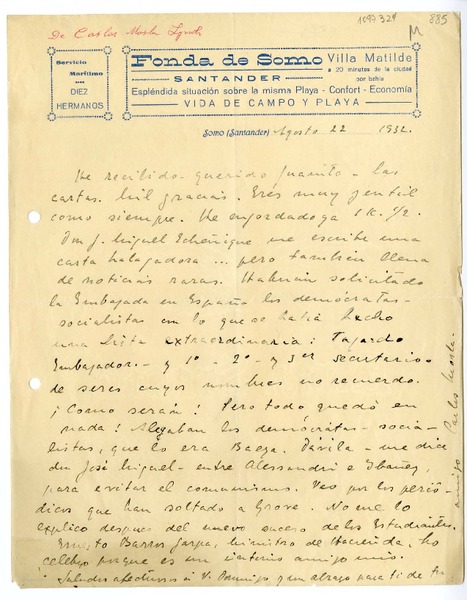 De Carlos Morla Lynch
1097324
885
M
Servicio
Marítimo
DIEZ
HERMANOS
Fonda de Somo
SANTANDER
Villa Matilde
a 20 minutos de la ciudad
por bahía
Espléndida situación sobre la misma Playa - Confort - Economía
VIDA DE CAMPO Y PLAYA
Somo (Santander) Agosto 22 1932.
He recibido - querido Juanito - las
cartas. Mil gracias. Eres muy gentil
como siempre. He engordado ya 1 K. 1/2.
Don J. Miguel Echeñique me escribe una
carta halagadora ... pero también llena
de noticias raras. Habían solicitado
la Embajada en España los demócratas-
socialistas en lo que se había hecho
una lista extraordinaria: Fajardo
Embajador. - y 1º 2º y 3er secretario -
de seres cuyos nombres no recuerdo.
¡Como serán! Pero todo quedó en
nada! Alegaban los demócratas - socia-
listas, que lo era Baeza. Dávila - me dice
don José Miguel - entre Alessandri e Ibañez,
para evitar el comunismo. Veo por los perió-
dicos que han soltado a Grove. No me lo
explico despues del nuevo suceso de los Estudiantes.
Ernesto Barros Jarpa, ministro de Hacienda, lo
celebro porque es un íntimo amigo mio.
Saludos afectuosos a V. Domingo y un abrazo para ti de tu
amigo Carlos Morla.